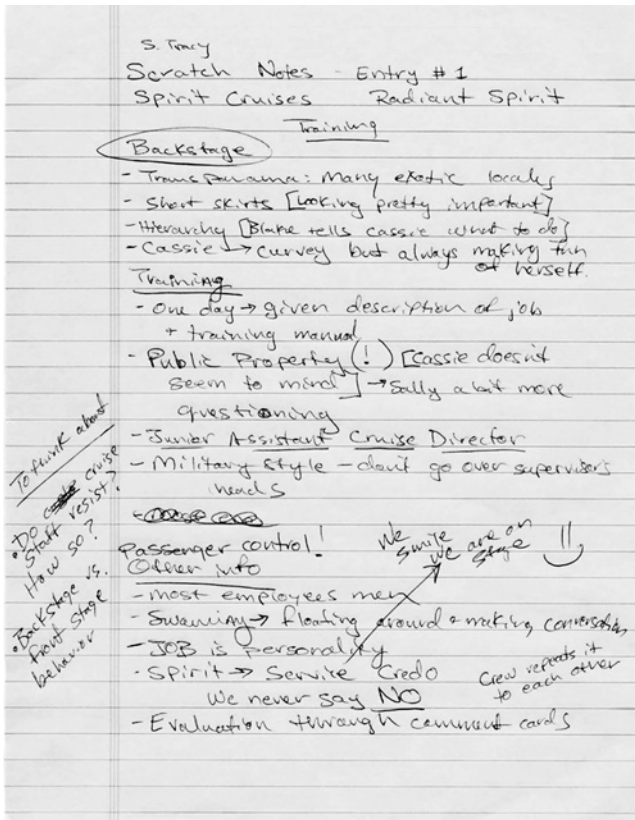 S. Tracy
Scratch Notes - Entry # 1
Spirit Cruises Radiant Spirit
Training
Backstage
- Transpanama: Many exotic locales
- Short skirts [Looking pretty important]
- Hierarchy [Blake tells cassie what to do]
- Cassie → curvey but always making fun
of herself.
Training
- One day → given description of job
+ training manual
- Public Property (!) [Cassie doesn't
seem to mind] → Sally a bit more
questioning
- Junior Assistant Cruise Director
- Military style - don't go over supervisors
heads
Passenger control!
We
smile
We are on
stage
Other info
- most employees men
- Swanning → floating around + making conversation
- JOB is personality
- Spirit → Service Credo
We never say NO
Crew repeats it
to each other
- Evaluation through comment cards
To think about
• Do cruise
staff resist?
How so?
• Backstage vs.
front stage
behavior